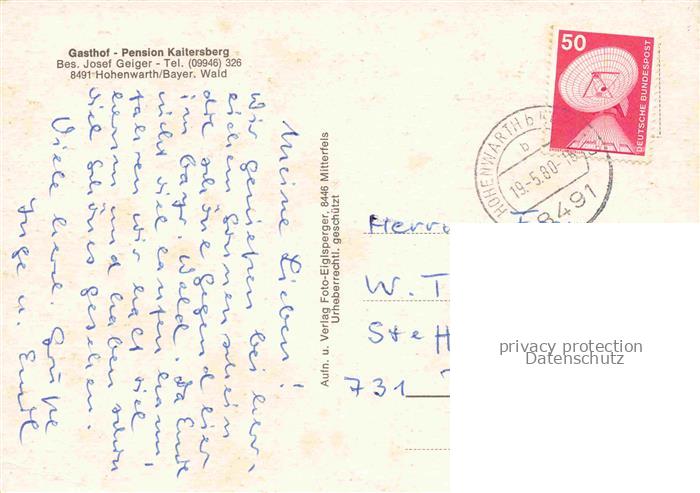 Gasthof - Pension Kaitersberg
Bes. Josef Geiger - Tel. (09946) 326
8491 Hohenwarth/Bayer. Wald
Meine Lieben!
Wir genießen bei herr-
lichem Sonnenschein
die schöne Gegend hier
im bayr. Wald. Da Emil
nicht viel laufen kann
fahren wir halt viel
herum und haben schon
viel schönes gesehen.
Viele herzl. Grüße
Inge u. Emil
Aufn. u. Verlag Foto-Eiglsperger, 8446 Mitterfels
Urheberrechtl. geschützt
50
DEUTSCHE BUNDESPOST
HOHENWARTH b
b
19.-5.80-18
8491
Herrn
W. T
Ste
731
privacy protection
Datenschutz